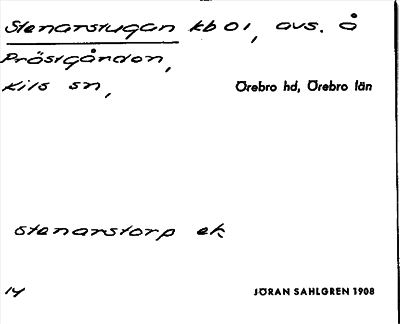 Stenarstugan kb 01, avs. å
Prästgården,
Kils sn, Örebro hd, Örebro län
Stenarstorp ek
14 JÖRAN SAHLGREN 1908